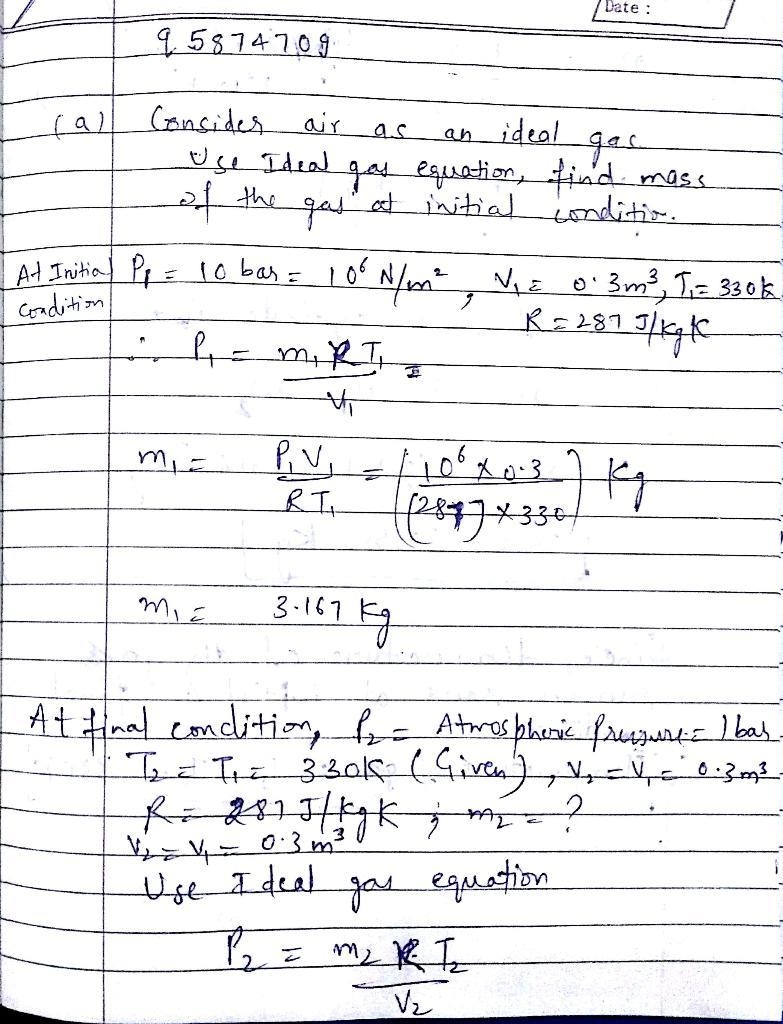 Date :
q 5874709
(a) Consider air as an ideal gas
Use Ideal gas equation, find mass
of the gas at initial condition.
At Initial condition P₁ = 10 bar = 10⁶ N/m², V₁ = 0.3m³, T₁ = 330K
R = 287 J/kgK
∴ P₁ = m₁RT₁ / V₁ =
m₁ = P₁V₁ / RT₁ = (10⁶ × 0.3 / (287) × 330) Kg
m₁ = 3.167 Kg
At final condition, P₂ = Atmospheric Pressure = 1 bar
T₂ = T₁ = 330K (Given), V₂ = V₁ = 0.3m³
R = 287 J/KgK ; m₂ = ?
V₂ = V₁ = 0.3 m³
Use Ideal gas equation
P₂ = m₂ R T₂ / V₂